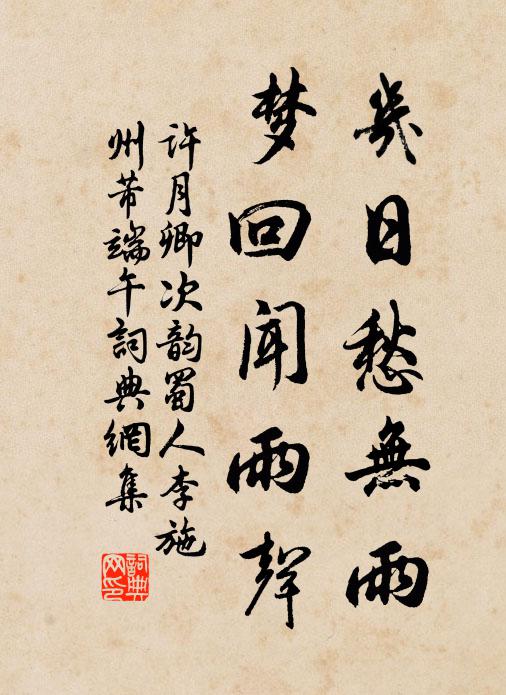 幾日愁無雨
梦回闻雨聲
許月卿次韵蜀人李施
州芾端午詞典網集
詞典网印